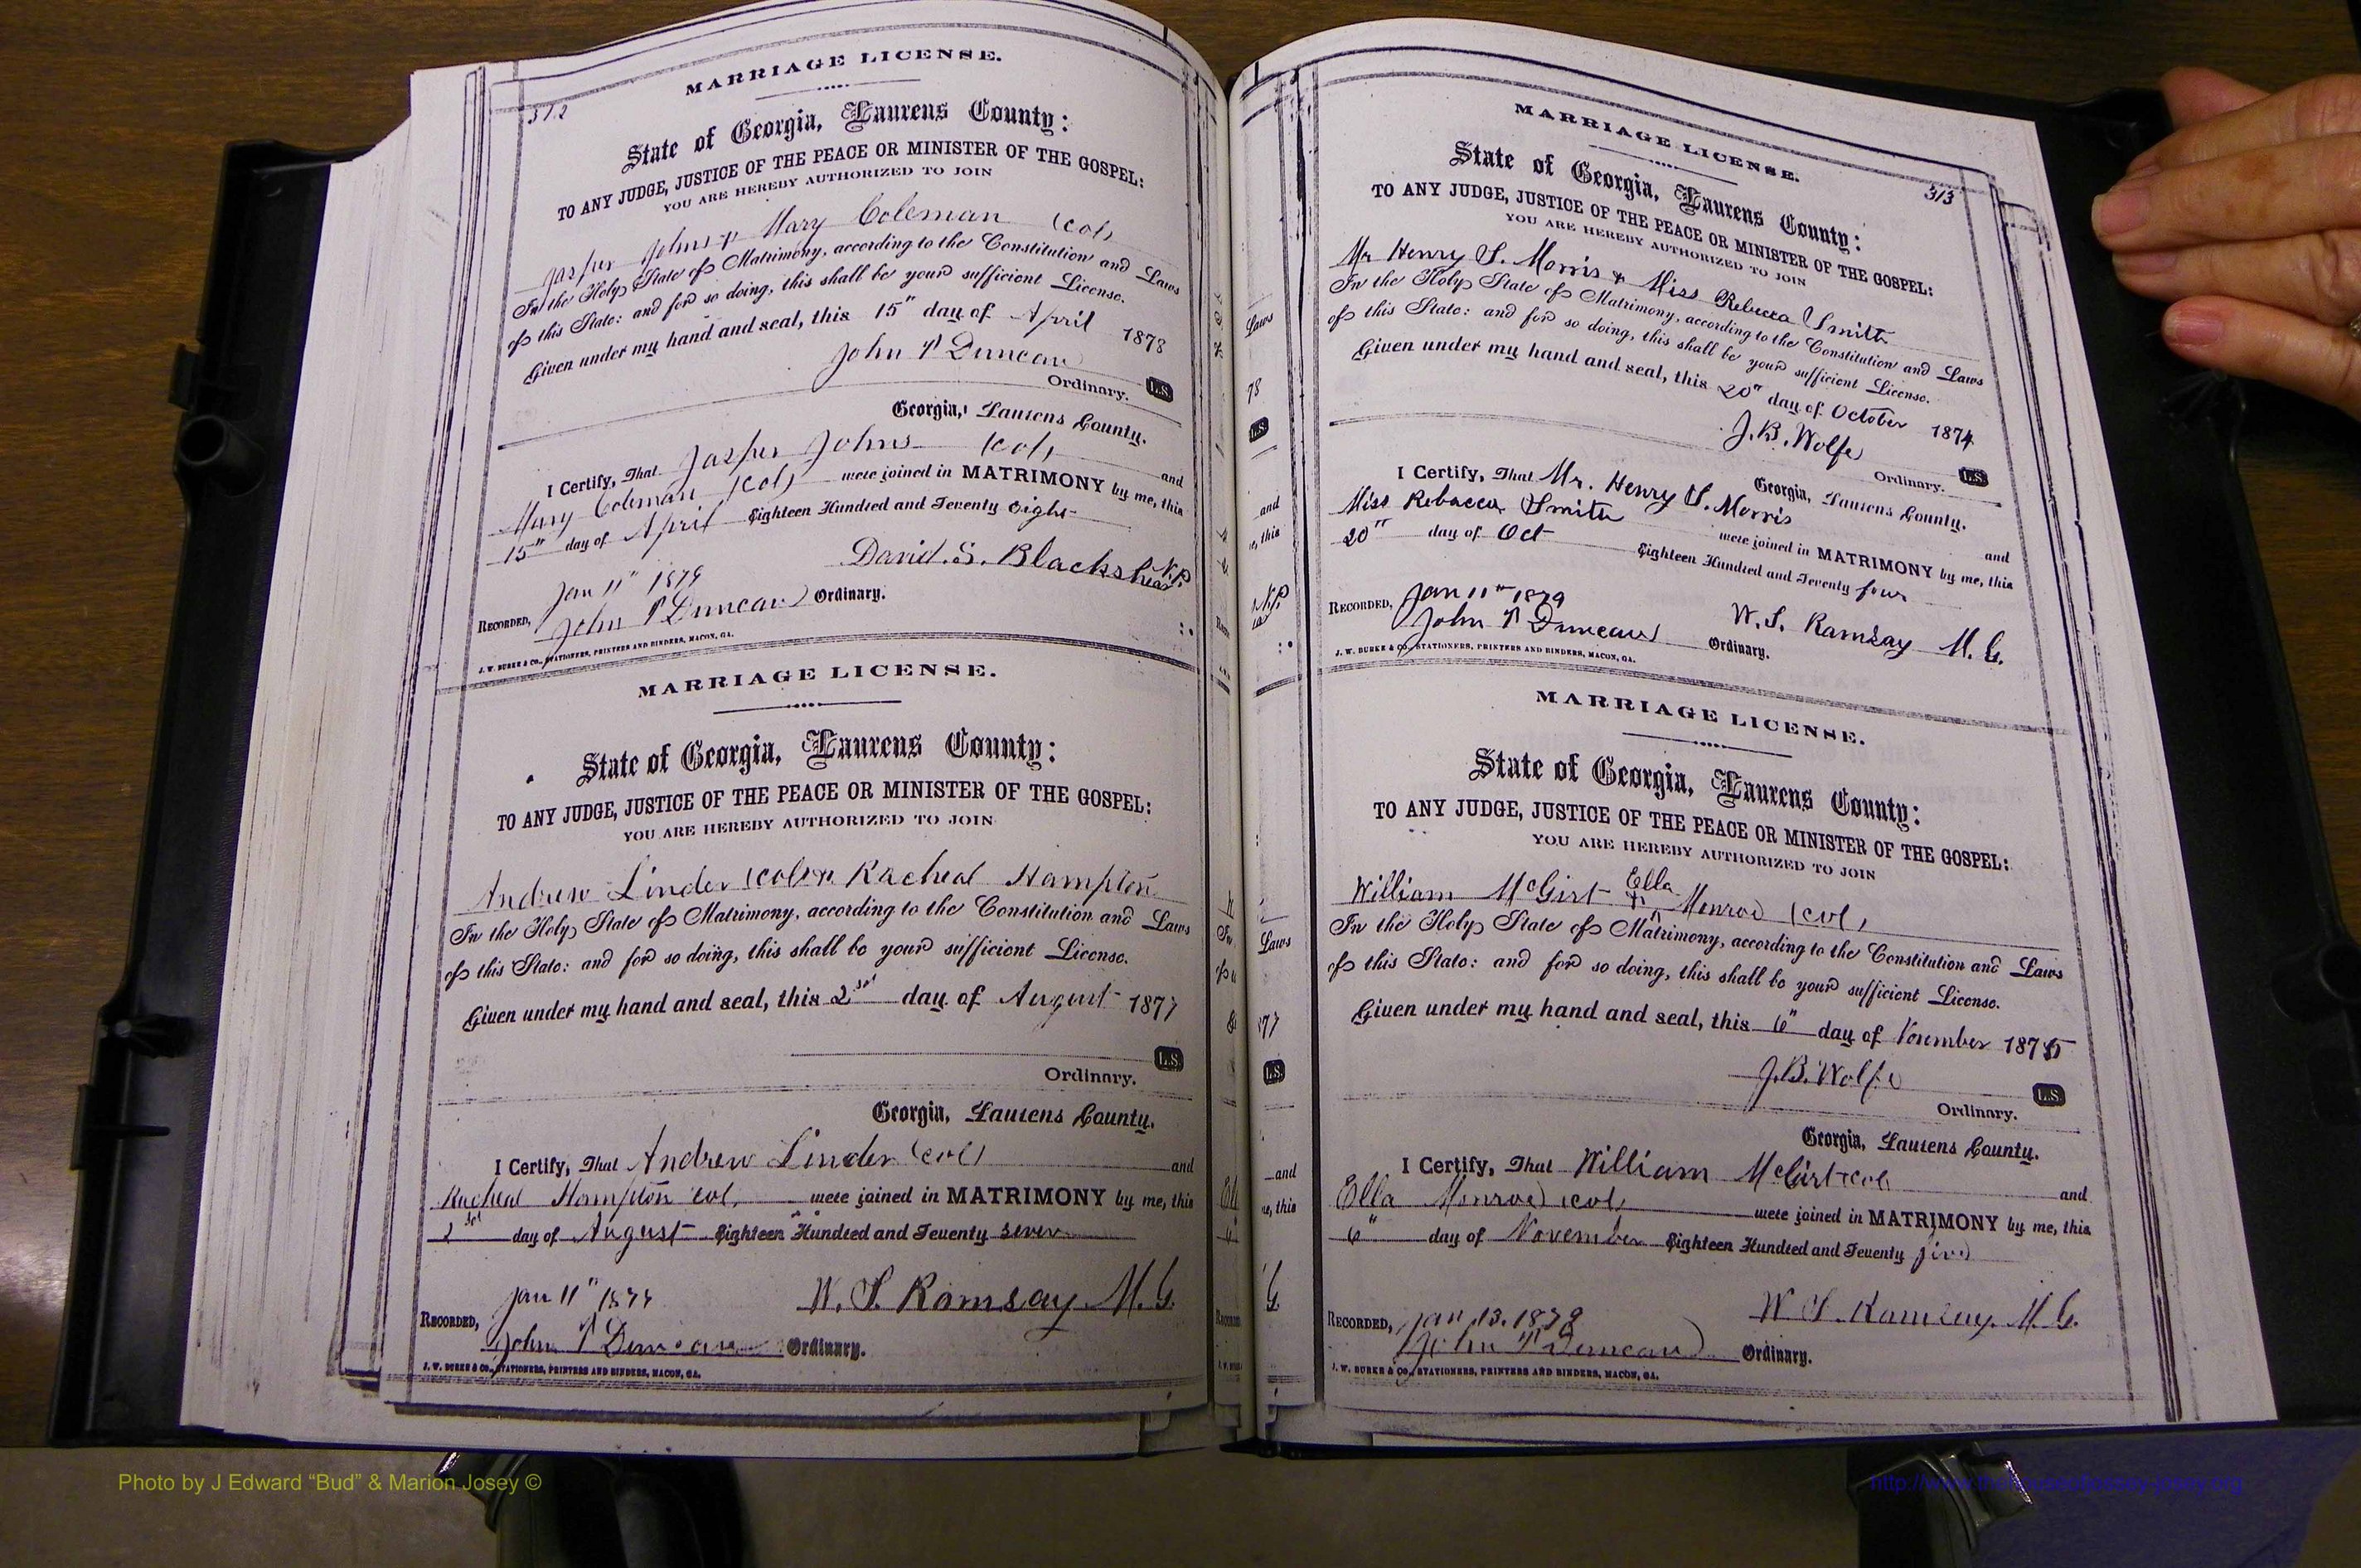 MARRIAGE LICENSE.
312
State of Georgia, Laurens County:
TO ANY JUDGE, JUSTICE OF THE PEACE OR MINISTER OF THE GOSPEL:
YOU ARE HEREBY AUTHORIZED TO JOIN
Jasper Johns & Mary Coleman (col)
In the Holy State of Matrimony, according to the Constitution and Laws
of this State: and for so doing, this shall be your sufficient License.
Given under my hand and seal, this 15" day of April 1878
John T Duncan
Ordinary. L.S.
Georgia, Laurens County.
I Certify, That Jasper Johns (col) and
Mary Coleman (col) were joined in MATRIMONY by me, this
15" day of April Eighteen Hundred and Seventy eight
David. S. Blackshear N.P.
Jan 11" 1879
RECORDED, John T Duncan Ordinary.
J. W. BURKE & CO., STATIONERS, PRINTERS AND BINDERS, MACON, GA.
MARRIAGE LICENSE.
State of Georgia, Laurens County:
TO ANY JUDGE, JUSTICE OF THE PEACE OR MINISTER OF THE GOSPEL:
YOU ARE HEREBY AUTHORIZED TO JOIN
Andrew Linder (col) & Racheal Hampton
In the Holy State of Matrimony, according to the Constitution and Laws
of this State: and for so doing, this shall be your sufficient License.
Given under my hand and seal, this 2 day of August 1877
L.S.
Ordinary.
Georgia, Laurens County.
I Certify, That Andrew Linder (col) and
Racheal Hampton col, were joined in MATRIMONY by me, this
2 day of August Eighteen Hundred and Seventy seven
Jan 11"
W. S. Ramsay M.G.
RECORDED, John T Duncan Ordinary.
J. W. BURKE & CO., STATIONERS, PRINTERS AND BINDERS, MACON, GA.
Laws
78
L.S.
and
this
N.P.
Laws
77
L.S.
and
this
G.
MARRIAGE LICENSE.
313
State of Georgia, Laurens County:
TO ANY JUDGE, JUSTICE OF THE PEACE OR MINISTER OF THE GOSPEL:
YOU ARE HEREBY AUTHORIZED TO JOIN
Mr Henry S. Morris & Miss Rebecca Smith
In the Holy State of Matrimony, according to the Constitution and Laws
of this State: and for so doing, this shall be your sufficient License.
Given under my hand and seal, this 20" day of October 1874
J. B. Wolfe
Ordinary. L.S.
Georgia, Laurens County.
I Certify, That Mr. Henry S. Morris and
Miss Rebacca Smith were joined in MATRIMONY by me, this
20" day of Oct Eighteen Hundred and Seventy four
Jan 11" 1879
W. S. Ramsay M. G.
RECORDED, John T Duncan Ordinary.
J. W. BURKE & CO., STATIONERS, PRINTERS AND BINDERS, MACON, GA.
MARRIAGE LICENSE.
State of Georgia, Laurens County:
TO ANY JUDGE, JUSTICE OF THE PEACE OR MINISTER OF THE GOSPEL:
YOU ARE HEREBY AUTHORIZED TO JOIN
William McGirt & Ella Monroe (col)
In the Holy State of Matrimony, according to the Constitution and Laws
of this State: and for so doing, this shall be your sufficient License.
Given under my hand and seal, this 6" day of November 1875
J. B. Wolfe
L.S.
Ordinary.
Georgia, Laurens County.
I Certify, That William McGirt col and
Ella Monroe col, were joined in MATRIMONY by me, this
6" day of November Eighteen Hundred and Seventy five
Jan 13. 1879
W. S. Ramsay. M. G.
RECORDED, John T Duncan Ordinary.
J. W. BURKE & CO., STATIONERS, PRINTERS AND BINDERS, MACON, GA.
Photo by J Edward “Bud” & Marion Josey ©